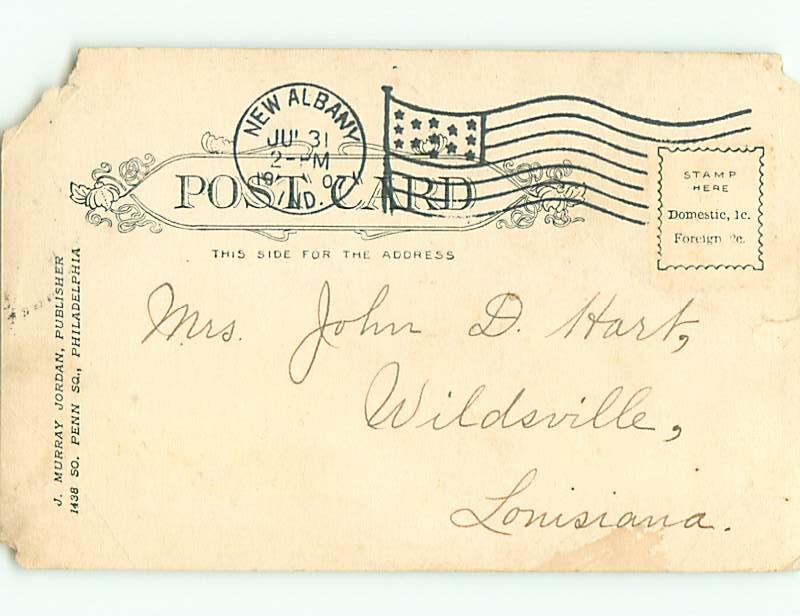 NEW ALBANY
JUL 31
2-PM
1907
IND.
POST CARD
THIS SIDE FOR THE ADDRESS
STAMP
HERE
Domestic, 1c.
Foreign 2c.
Mrs. John D. Hart,
Wildsville,
Louisiana.
J. MURRAY JORDAN, PUBLISHER
1438 SO. PENN SQ., PHILADELPHIA